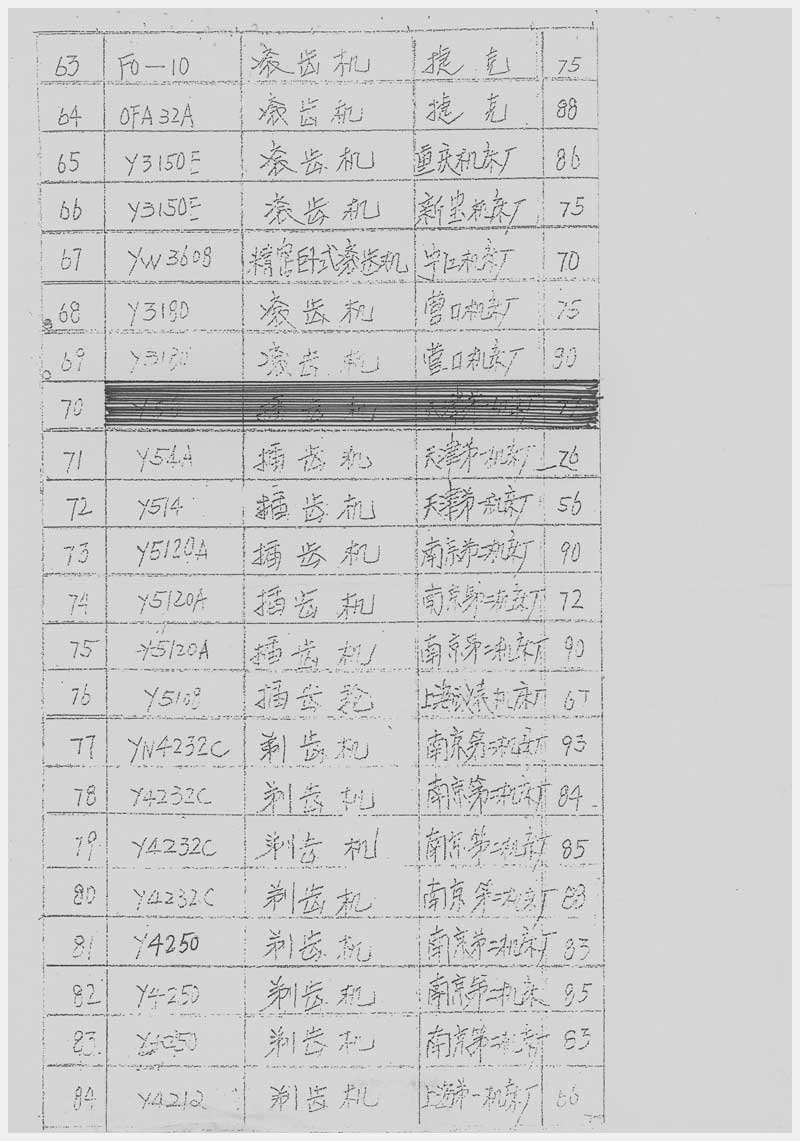 63 F0-10 滚齿机 捷克 75
64 OFA32A 滚齿机 捷克 88
65 Y3150E 滚齿机 重庆机床厂 86
66 Y3150E 滚齿机 机床厂 75
67 YW3608 精密卧式滚齿机 机床厂 70
68 Y3180 滚齿机 营口机床厂 75
69 Y3180 滚齿机 营口机床厂 80
70
71 Y54A 插齿机 天津第一机床厂 76
72 Y514 插齿机 天津第一机床厂 56
73 Y5120A 插齿机 南京第二机床厂 90
74 Y5120A 插齿机 南京第二机床厂 72
75 Y5120A 插齿机 南京第二机床厂 90
76 Y5108 插齿 上海 机床厂
77 YN4232C 剃齿机 南京第二机床厂 93
78 Y4232C 剃齿机 南京第二机床厂 84
79 Y4232C 剃齿机 南京第二机床厂 85
80 Y4232C 剃齿机 南京第二机床厂 83
81 Y4250 剃齿机 南京第二机床厂 83
82 Y4250 剃齿机 南京第二机床 85
83 Y4250 剃齿机 南京第二机床厂 83
84 Y4212 剃齿机 上海第一机床厂 66